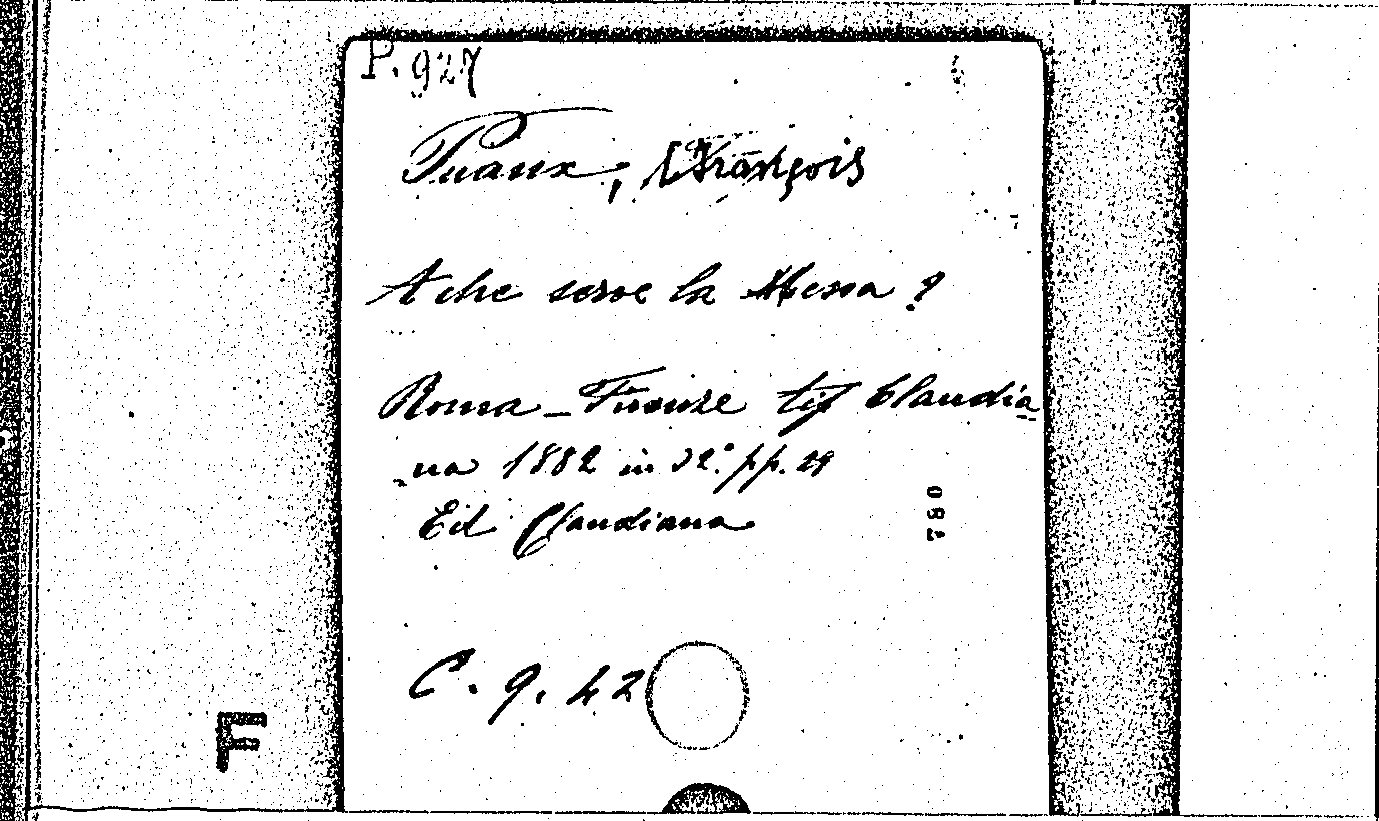 P. 927
Puaux, [François
A che serve la Messa?
Roma - Firenze tip Claudia
-na 1882 in 32° pp. 29
Ed Claudiana
780
C. 9. 42
F